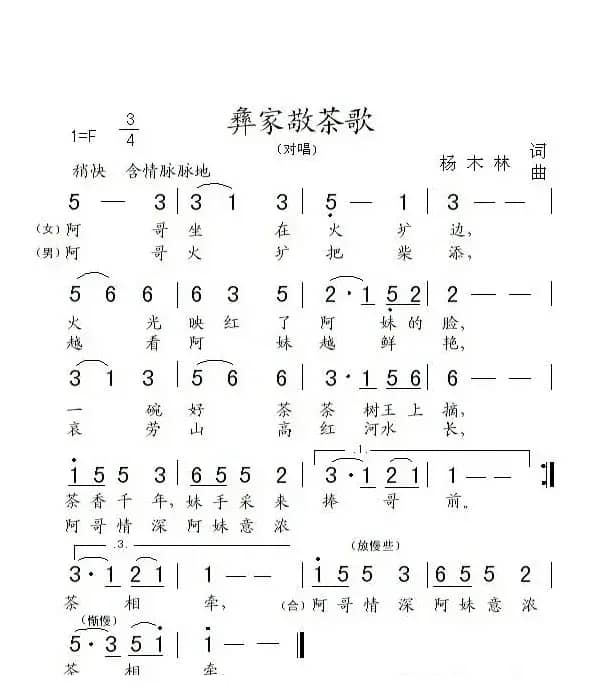 彝家敬茶歌
1=F 3/4
(对唱)
杨木林 词曲
稍快 含情脉脉地
5 — 3 | 3 1 3 | 5̣ — 1 | 3 — — |
(女)阿哥坐在火圹边,
(男)阿哥火圹把柴添,
5 6 6 | 6 3 5 | 2·1 5̣2 | 2 — — |
火光映红了阿妹的脸,
越看阿妹越鲜艳,
3 1 3 | 5 6 6 | 3·1 56 | 6 — — |
一碗好茶茶树王上摘,
哀劳山高红河水长,
1̇ 5 5 3 | 6 5 5 2 | 3·1 2 1 | 1 — — :|
.1.
茶香千年,妹手采来捧哥前。
阿哥情深阿妹意浓
.3.
(放慢些)
3·1 2 1 | 1 — — | 1̇ 5 5 3 | 6 5 5 2 |
茶相牵, (合)阿哥情深阿妹意浓
(惭慢)
5·3 5 1̇ | 1̇ — — |
茶相牵。